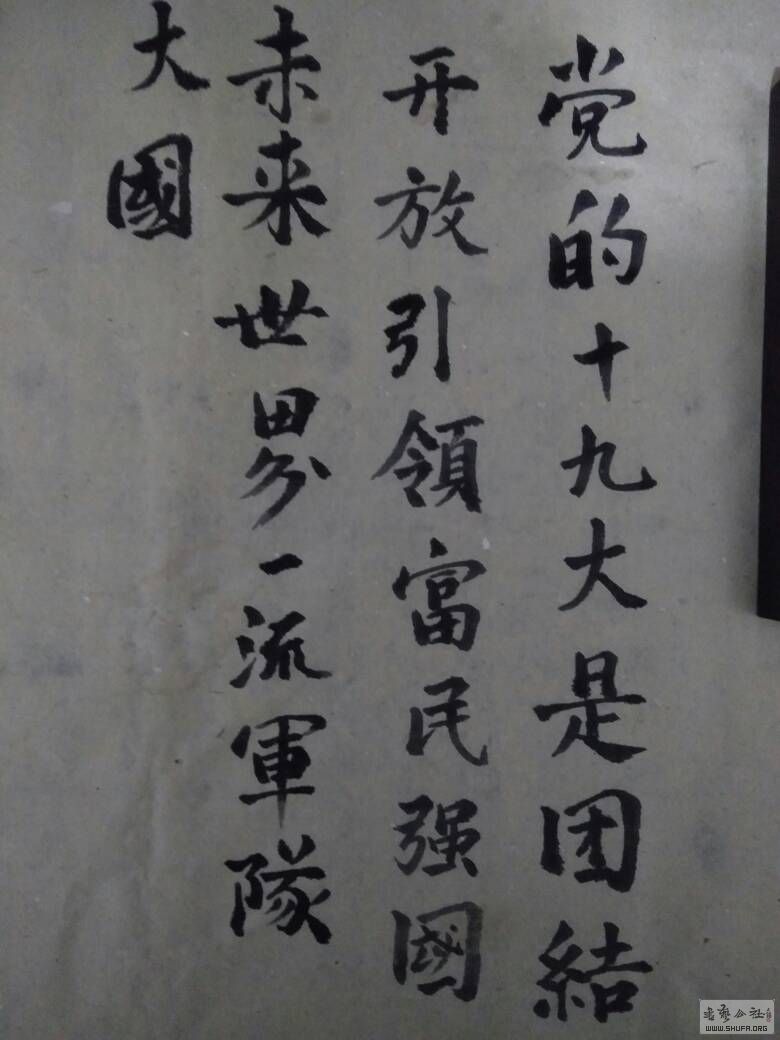 党的十九大是团結
开放引領富民强國
未来世界一流軍隊
大國
WWW.SHUFA.ORG